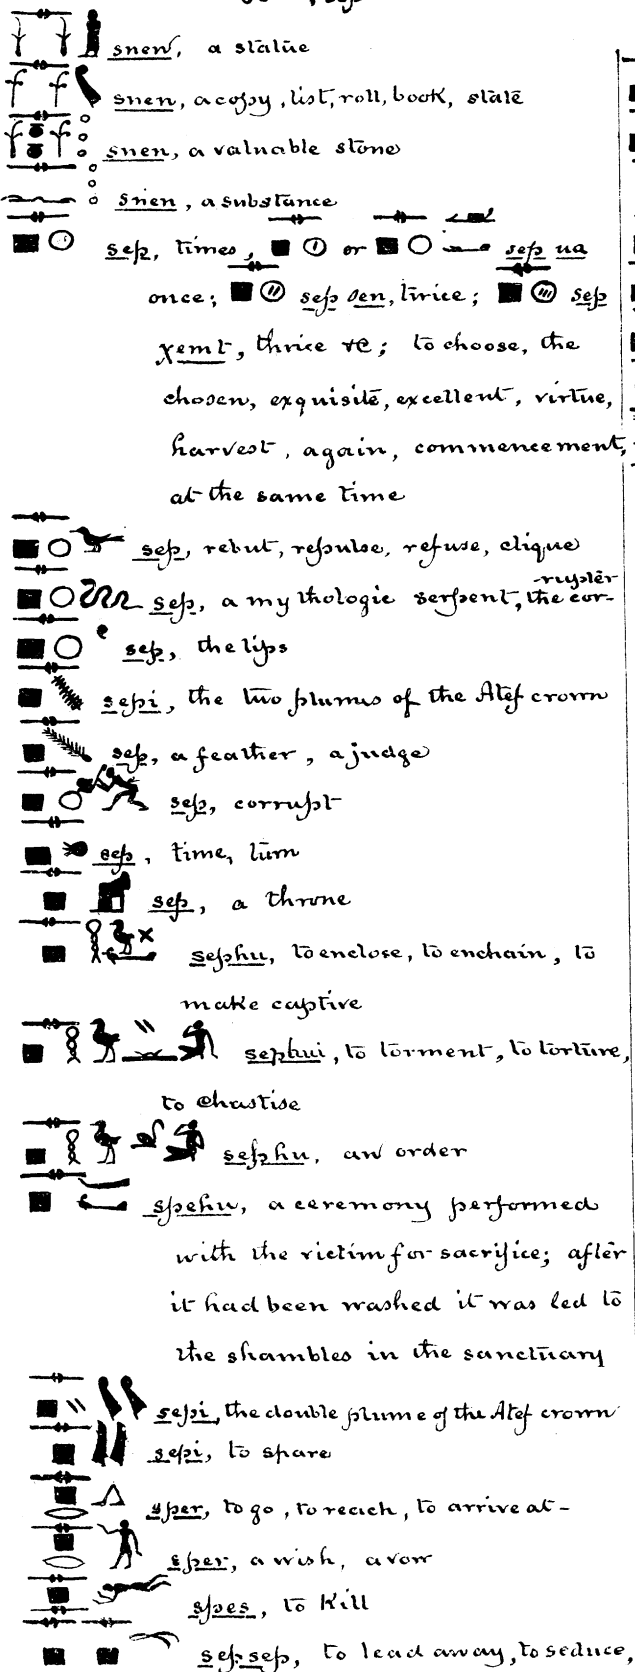 snen, a statue
snen, a copy, list, roll, book, state
snen, a valuable stone
snen, a substance
sep, times, or sep ua
once; sep sen, twice; sep
χemt, thrice &c; to choose, the
chosen, exquisite, excellent, virtue,
harvest, again, commencement,
at the same time
sep, rebut, repulse, refuse, clique
sep, a mythologic serpent, the cor-
-rupter
sep, the lips
sepi, the two plumes of the Atef crown
sep, a feather, a judge
sep, corrupt
sep, time, turn
sep, a throne
sephu, to enclose, to enchain, to
make captive
sephui, to torment, to torture,
to chastise
sephu, an order
spehu, a ceremony performed
with the victim for sacrifice; after
it had been washed it was led to
the shambles in the sanctuary
sepi, the double plume of the Atef crown
sepi, to spare
sper, to go, to reach, to arrive at-
sper, a wish, a vow
spes, to kill
sepsep, to lead away, to seduce,